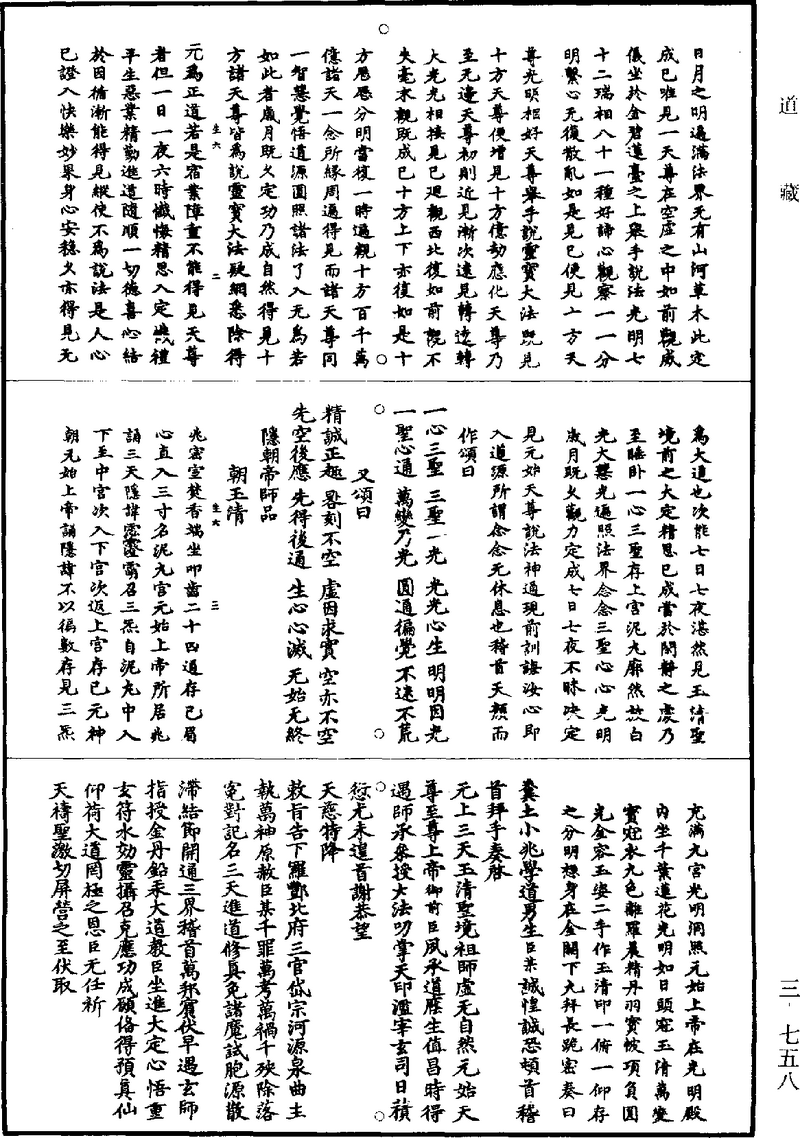 道藏
三·七五八
日月之明遍滿法界无有山河草木此定
成已唯見一天尊在空虛之中如前觀威
儀坐於金碧蓮臺之上舉手說法光明七
十二瑞相八十一種好諦心觀察一一分
明繫心无復散亂如是見已便見上方天
尊光明相好天尊舉手說靈寶大法既見
十方天尊便增見十方億劫應化天尊乃
至无邊天尊初則近見漸次遠見轉遠轉
大光光相接見已迴觀西北復如前觀不
失毫末觀既成已十方上下亦復如是十
方悉悉分明當復一時遍觀十方百千萬
億諸天一念所緣周遍得見而諸天尊同
一智慧覺悟道源圓照諸法了入无為若
如此者歲月既久定功乃成自然得見十
方諸天尊皆為說靈寶大法疑網悉除得
生六 二
元為正道若是宿業障重不能得見天尊
者但一日一夜六時懺悔精思入定歲禮
平生惡業精勤進道隨順一切德喜心結
於因循漸能得見縱使不為說法是人心
已證入快樂妙果身心安穩久亦得見无
為大道也次能七日七夜湛然見玉清聖
境前之大定精思已成當於閑靜之處乃
至睡卧一心三聖存上宮泥丸廓然放白
光大慧光遍照法界念念三聖心心光明
歲月既久觀力定成七日七夜不昧決定
見元始天尊說法神通現前訓誨汝心即
入道源所謂念念无休息也稽首天顏而
作頌曰
一心三聖 三聖一光 光光心生 明明因光
一聖心通 萬變乃光 圓通徧覺 不迷不荒
又頌曰
精誠正趣 晷刻不空 虛因求實 空亦不空
先空後應 先得後通 生心心滅 无始无終
隱朝帝師品
朝玉清
生六 三
兆密室焚香端坐叩齒二十四通存已眉
心直入三寸名泥丸宮元始上帝所居兆
誦三天隱諱召三炁自泥丸中入
下至中宮次入下宮次返上宮存已元神
朝元始上帝誦隱諱不以徧數存見三炁
充滿九宮光明洞照元始上帝在光明殿
內坐千葉蓮花光明如日頭冠玉清萬變
寶冠衣九色離羅晨精丹羽寶帔項負圓
光金容玉姿二手作玉清印一俯一仰存
之分明想身在金闕下九拜長跪密奏曰
糞土小兆學道男生臣某誠惶誠恐頓首稽
首拜手奏啓
元上三天玉清聖境祖師虛无自然元始天
尊至尊上帝御前臣夙承道廕生值昌時得
遇師承粲授大法叨掌天印濫宰玄司日積
愆尤未遑首謝恭望
天慈特降
敕旨告下羅酆北府三官岱宗河源泉曲主
執萬神原赦臣某千罪萬考萬禍千殃除落
冤對記名三天進道修真免諸魔試胞源散
滯結節開通三界稽首萬邦賓伏早遇玄師
指授金丹鉛汞大道教臣坐進大定心悟重
玄符水効靈攝召克應功成願俻得預真仙
仰荷大道罔極之恩臣无任祈
天禱聖激切屏營之至伏取